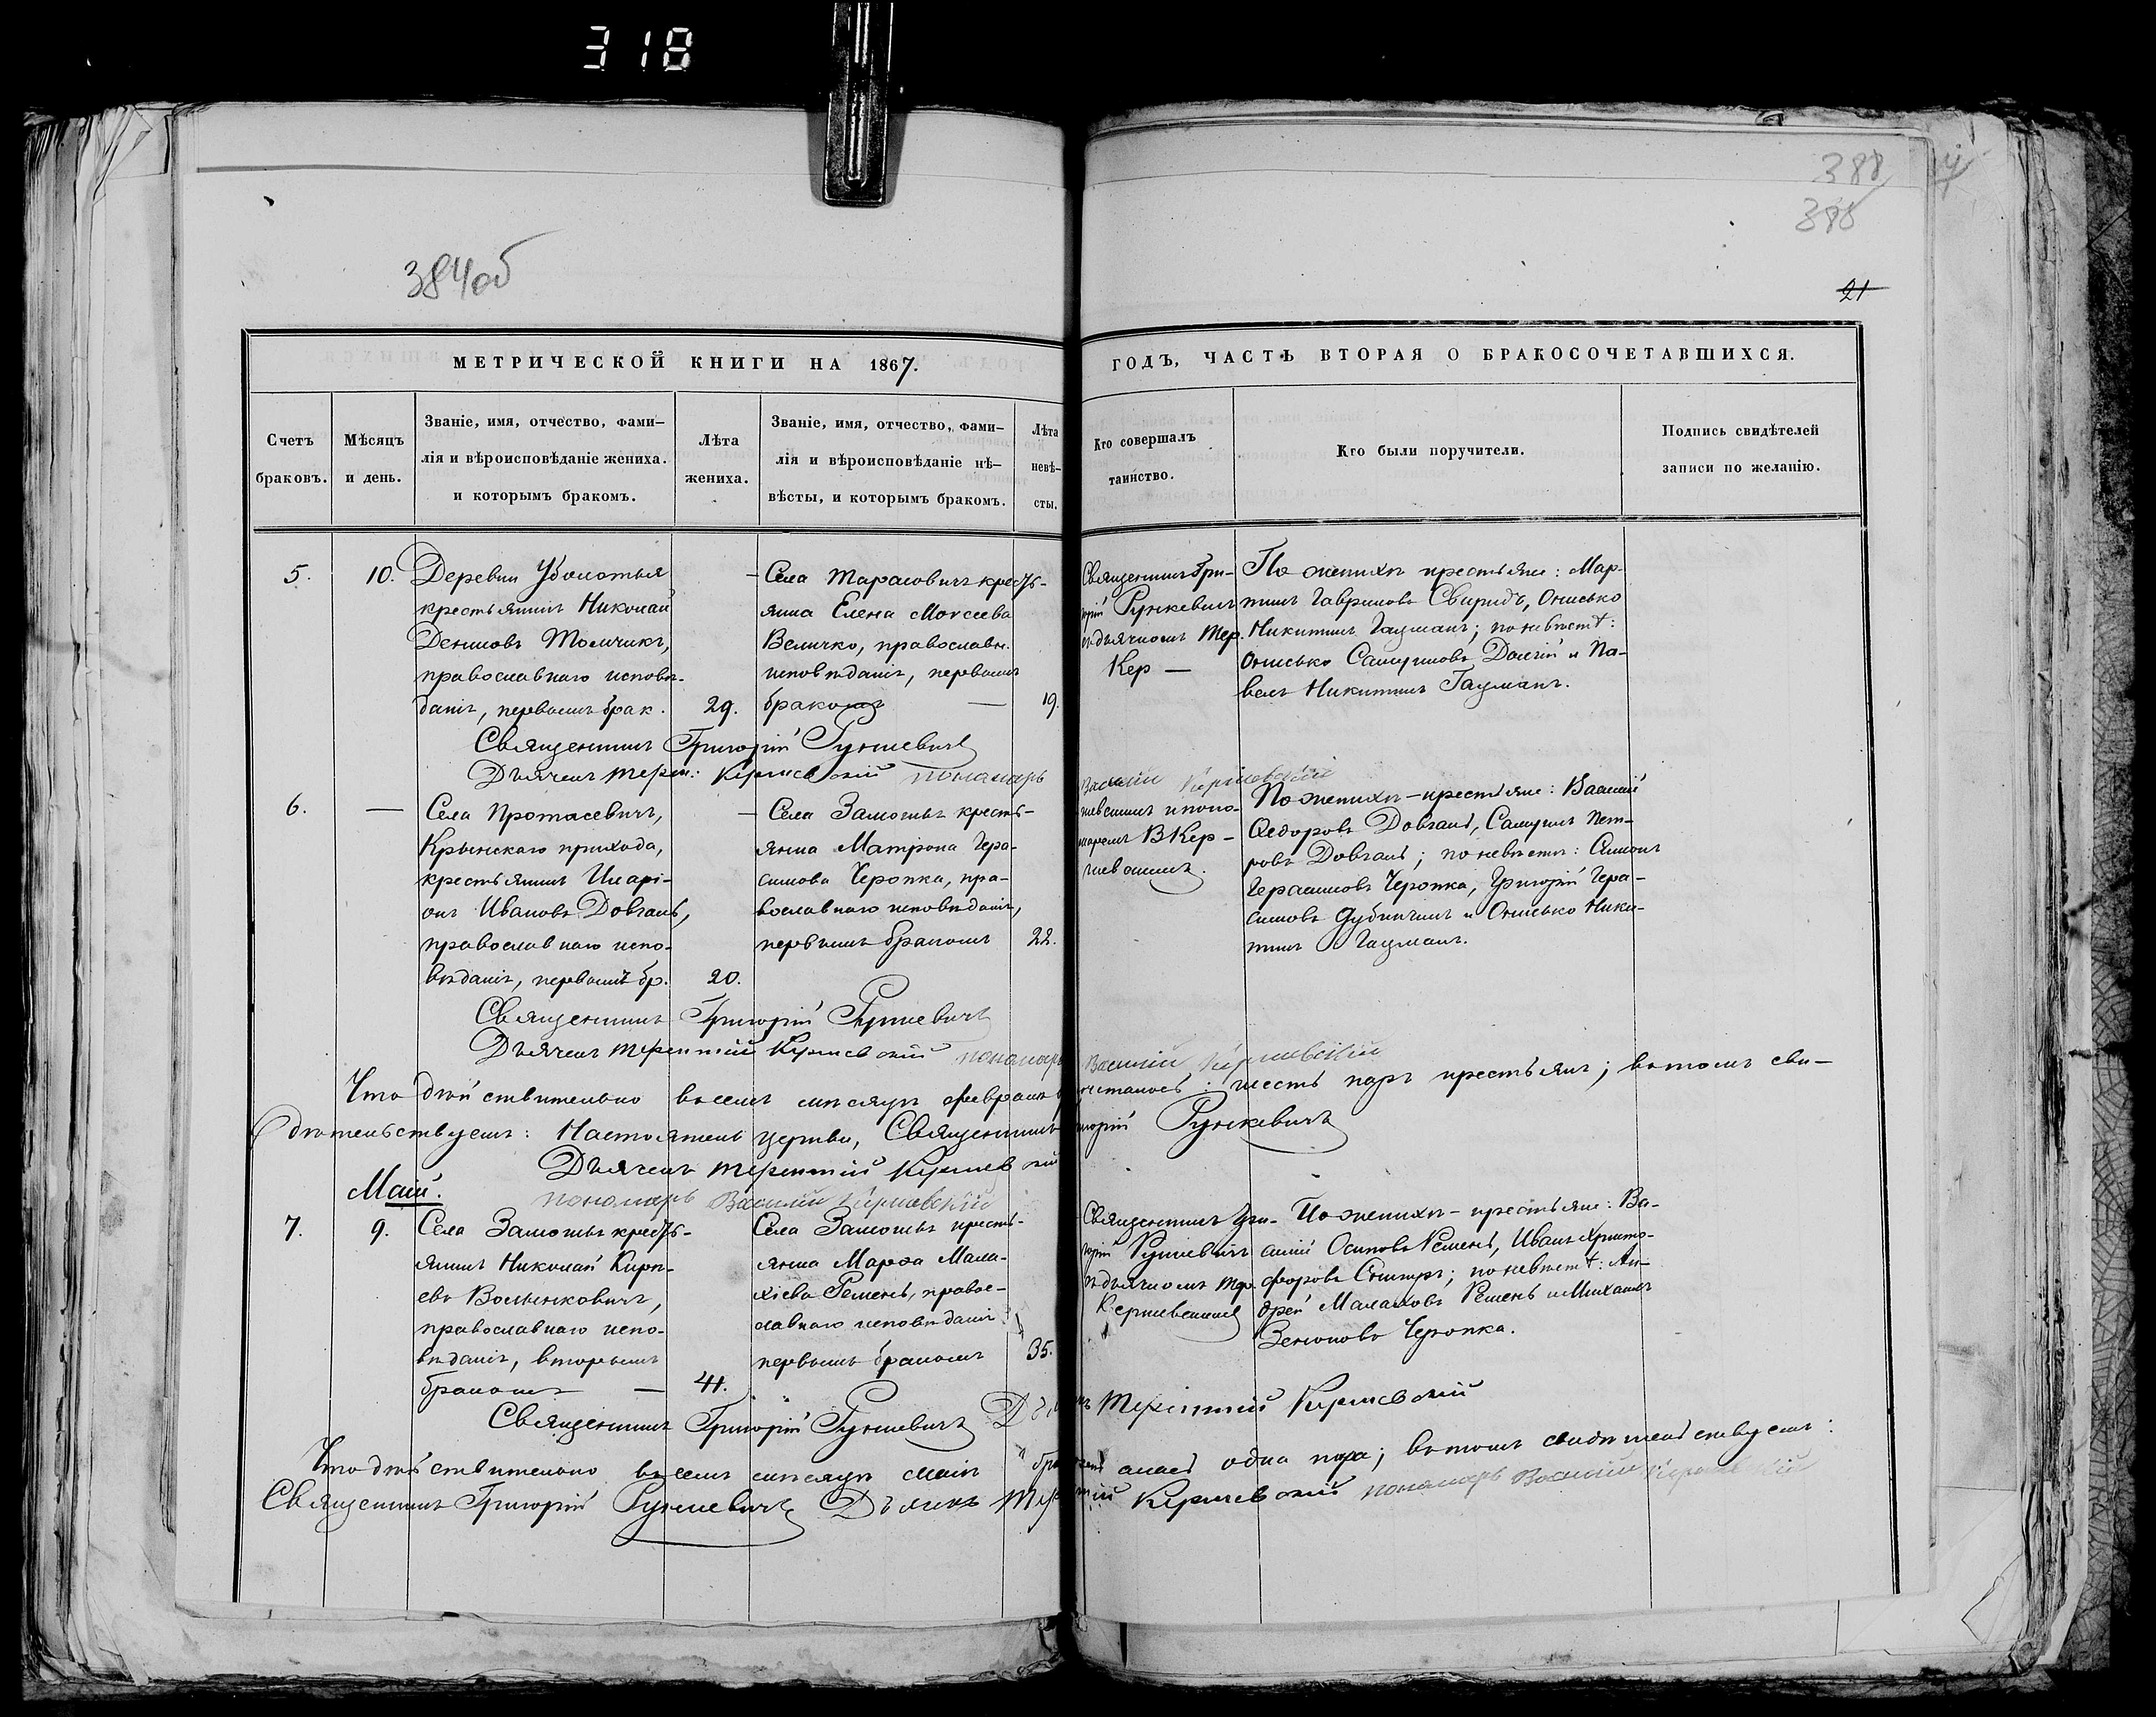 318
388
388
384об
21
МЕТРИЧЕСКОЙ КНИГИ НА 1867.
ГОДЪ, ЧАСТЬ ВТОРАЯ О БРАКОСОЧЕТАВШИХСЯ.
Счетъ браковъ.
Мѣсяцъ и день.
Званіе, имя, отчество, фами-
лія и вѣроисповѣданіе жениха.
и которымъ бракомъ.
Лѣта жениха.
Званіе, имя, отчество, фами-
лія и вѣроисповѣданіе нѣ-
вѣсты, и которымъ бракомъ.
Лѣта
невѣ-
сты.
Кто совершалъ
таинство.
Кто были поручители.
Подпись свидѣтелей
записи по желанію.
5.
10.
Деревни Уболотья
крестьянинъ Николай
Денисовъ Толчикъ,
православнаго исповѣ-
данія, первымъ брак.
29.
Села Тарасовичъ кресть-
янка Елена Моѵсеева
Величко, православн.
исповѣданія, первымъ
бракомъ
19.
Священникъ Гри-
горій Рункевичъ
съ дьячкомъ Тер.
Кер —
По женихѣ крестьяне: Мар-
тинъ Гавриловъ Свиридъ, Онисько
Никитинъ Гацманъ; по невѣстѣ:
Онисько Самуиловъ Долгій и Па-
велъ Никитинъ Гацманъ.
Священникъ Григорій Рункевичъ
Дьячекъ Терен: Керножевскій пономарь
Василій
6.
—
Села Протасевичъ,
Крынскаго прихода,
крестьянинъ Иларі-
онъ Ивановъ Довгаль,
православнаго испо-
вѣданія, первымъ бр.
20.
Села Замошья кресть-
янка Матрона Гера-
симова Черопка, пра-
вославнаго исповѣданія,
первымъ бракомъ
22.
По женихѣ – крестьяне: Василій
Ѳедоровъ Довгаль, Самуилъ Пет-
ровъ Довгаль; по невѣстѣ: Симонъ
Герасимовъ Черопка, Григорій Гера-
симовъ Дубинчинъ и Онисько Ники-
тинъ Гацманъ.
Священникъ Григорій Рункевичъ
Дьячекъ Терентій пономарь
Василій
Что дѣйствительно въ семъ мѣсяцѣ февралѣ
шесть паръ крестьянъ; въ томъ сви-
дѣтельствуемъ: Настоятель церкви, Священникъ
горій Рункевичъ
Дьячекъ Терентій
пономарь Василій
Маій.
7.
9.
Села Замошья кресть-
янинъ Николай Кирѣ-
евъ Волынковичъ,
православнаго испо-
вѣданія, вторымъ
бракомъ —
41.
Села Замошья кресть-
янка Марѳа Мала-
хіева Ремень, право-
славнаго исповѣданія
первымъ бракомъ
35.
Священникъ Гри-
горій Рункевичъ
съ дьячкомъ Тер.
По женихѣ – крестьяне: Ва-
силій Осиповъ Ремень, Иванъ Христо-
форовъ; по невѣстѣ: Ан-
дрей Малаховъ Ремень и Михаилъ
Зеноновъ Черопка.
Священникъ Григорій Рункевичъ
Терентій
Что дѣйствительно въ семъ мѣсяцѣ маіѣ
одна пара; въ томъ свидѣтельствуемъ:
Священникъ Григорій Рункевичъ Дьячекъ
пономарь Василій